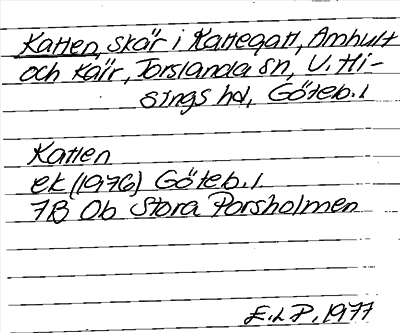 Katten, skär i Kattegatt, Amhult
och Kärr, Torslanda sn, V. Hi-
sings hd, Göteb. l
Katten
ek (1976) Göteb. l.
7B 0b Stora Porsholmen
E.L.P. 1977